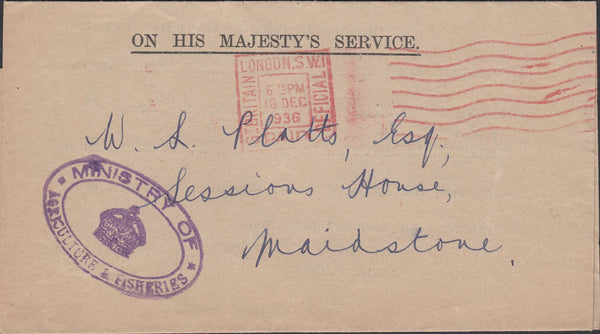 ON HIS MAJESTY'S SERVICE.
LONDON, S.W.1
GT BRITAIN
6 15 PM
16 DEC
1936
OFFICIAL
PAID
W. L. Platts, Esq.,
Sessions House,
Maidstone.
MINISTRY OF
AGRICULTURE & FISHERIES